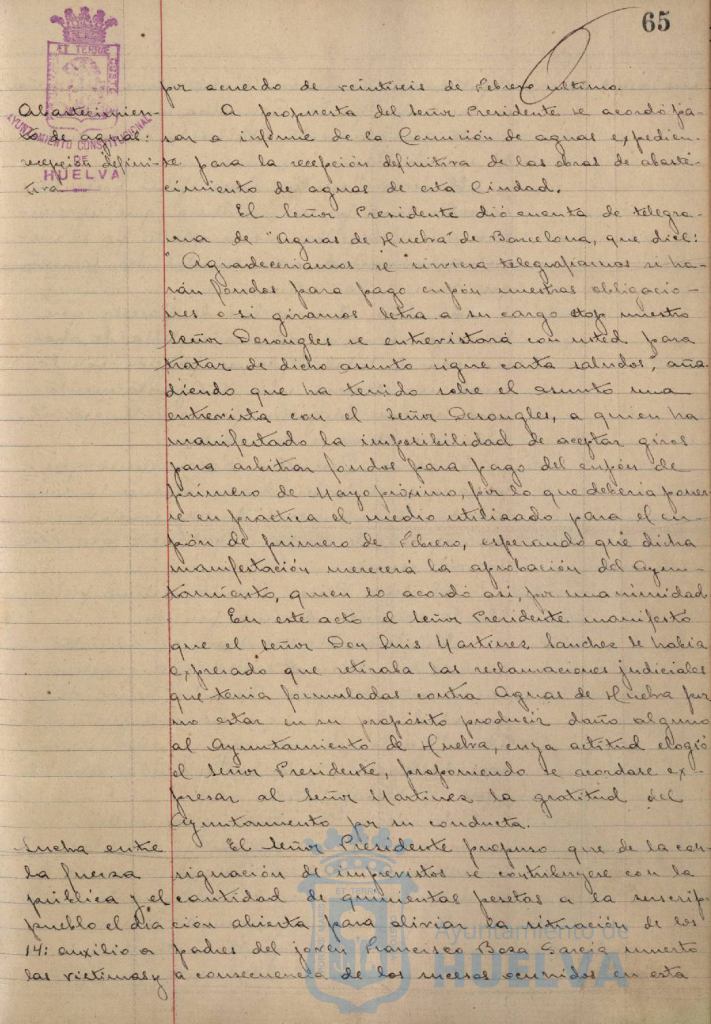 65
ET TERRE
AYUNTAMIENTO CONSTITUCIONAL
DE
HUELVA
por acuerdo de veintiseis de Febrero último.
Abastecimien-
to de aguas:
recepción defini-
tiva
A propuesta del Señor Presidente se acordó pa-
sar a informe de la Comisión de aguas expedien-
te para la recepción definitiva de las obras de abaste-
cimiento de aguas de esta Ciudad.
El Señor Presidente dió cuenta de telegra-
ma de "Aguas de Huelva" de Barcelona, que dice:
"Agradeceriamos se sirviera telegrafiarnos si ha-
rán fondos para pago cupón nuestras obligacio-
nes o si giramos letra a su cargo stop nuestro
Señor Desongles se entrevistará con usted para
tratar de dicho asunto sigue carta saludos", aña-
diendo que ha tenido sobre el asunto una
entrevista con el Señor Desongles, a quien ha
manifestado la imposibilidad de aceptar giros
para arbitrar fondos para pago del cupón de
primero de Mayo próximo, por lo que debería poner-
se en practica el medio utilizado para el cu-
pón de primero de Febrero, esperando que dicha
manifestación merecerá la aprobación del Ayun-
tamiento, quien lo acordó así, por unanimidad.
En este acto el Señor Presidente manifestó
que el Señor Don Luis Martinez Sanchez le había
expresado que retiraba las reclamaciones judiciales
que tenia formuladas contra Aguas de Huelva por
no estar en su propósito producir daño alguno
al Ayuntamiento de Huelva, cuya actitud elogió
el Señor Presidente, proponiendo se acordase ex-
presar al Señor Martinez la gratitud del
Ayuntamiento por su conducta.
Lucha entre
la fuerza
pública y el
pueblo el dia
14: auxilio a
las victimas y
El Señor Presidente propuso que de la con-
signación de imprevistos se contribuyese con la
cantidad de quinientas pesetas a la suscrip-
ción abierta para aliviar la situación de los
padres del joven Francisco Boza Garcia muerto
a consecuencia de los sucesos ocurridos en esta
Ayuntamiento de
HUELVA